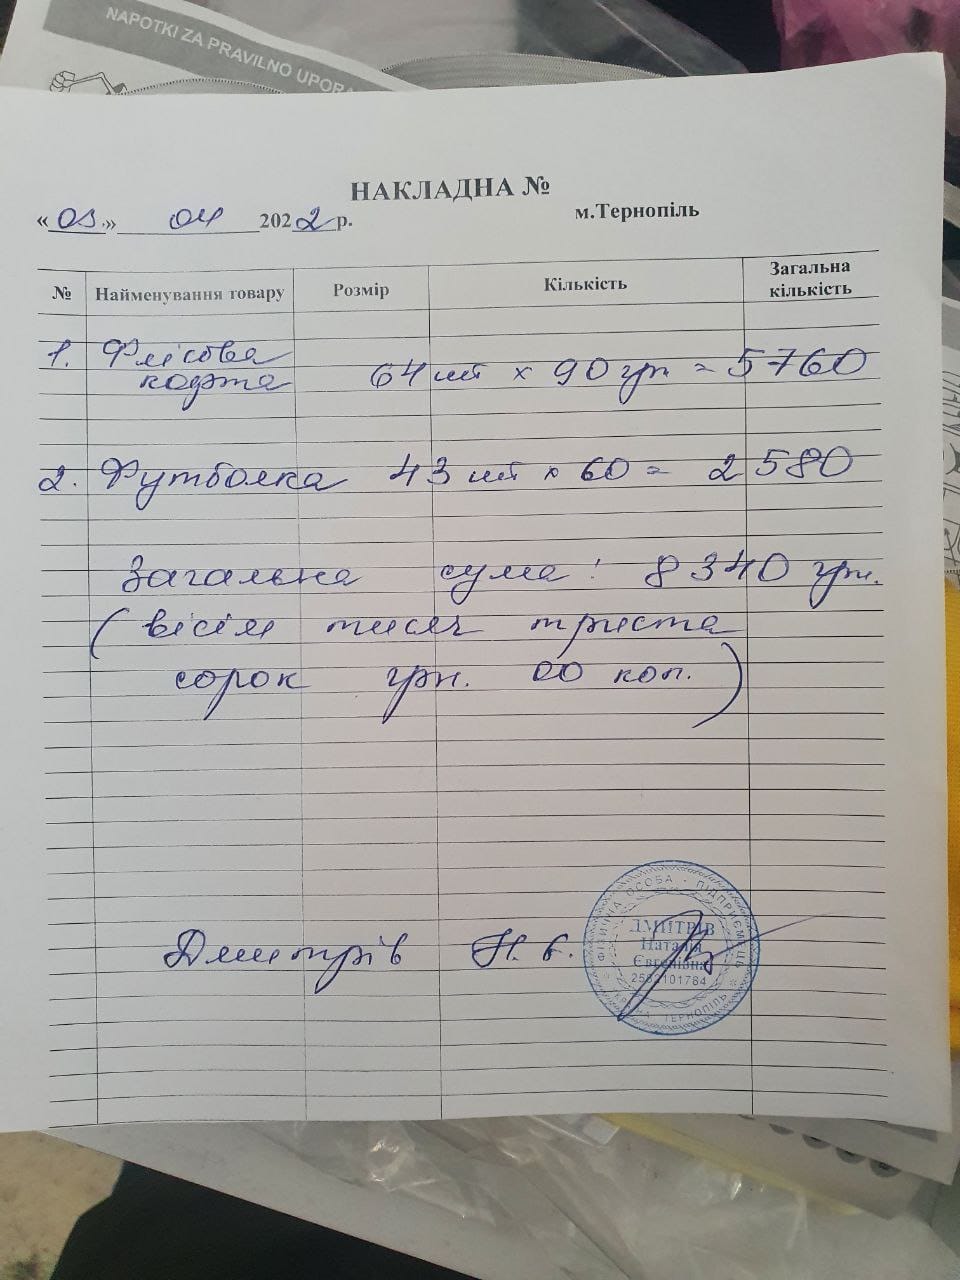 NAPOTKI ZA PRAVILNO UPORA
НАКЛАДНА №
«03.» 04 2022р.
м.Тернопіль
№ Найменування товару Розмір Кількість Загальна кількість
1. Флісова
кофта 64 шт х 90 грн = 5760
2. Футболка 43 шт х 60 = 2580
Загальна сума: 8340 грн.
(вісім тисяч триста
сорок грн. 00 коп.)
Дмитрів Н. Є.
ФІЗИЧНА ОСОБА - ПІДПРИЄМЕЦЬ
ДМИТРІВ
Наталія
Євгенівна
УКРАЇНА ТЕРНОПІЛЬ